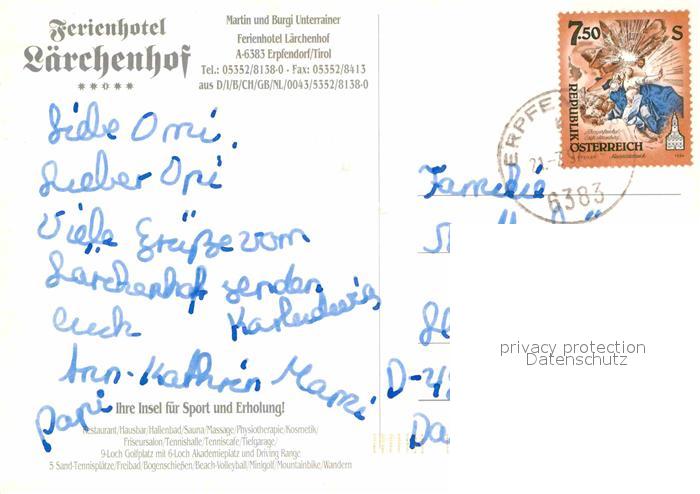 Ferienhotel
Lärchenhof
Martin und Burgi Unterrainer
Ferienhotel Lärchenhof
A-6383 Erpfendorf/Tirol
Tel.: 05352/8138-0 · Fax: 05352/8413
aus D/I/B/CH/GB/NL/0043/5352/8138-0
7.50 S
REPUBLIK
ÖSTERREICH
ERPFE
6383
Liebe Omi,
Lieber Opi
Viele Grüße vom
Lärchenhof senden
Euch Karludwig
Ann-Kathrin Mami
Papi
Familie
D-4
Da
privacy protection
Datenschutz
Ihre Insel für Sport und Erholung!
Restaurant/Hausbar/Hallenbad/Sauna/Massage/Physiotherapie/Kosmetik/
Friseursalon/Tennishalle/Tenniscafe/Tiefgarage/
9-Loch Golfplatz mit 6-Loch Akademieplatz und Driving Range
5 Sand-Tennisplätze/Freibad/Bogenschießen/Beach-Volleyball/Minigolf/Mountainbike/Wandern